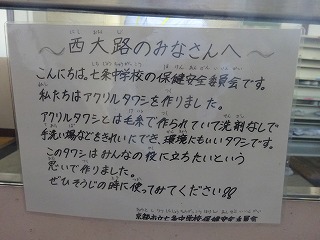 ～西大路のみなさんへ～
こんにちは。七条中学校の保健安全委員会です。
私たちはアクリルタワシを作りました。
アクリルタワシとは毛糸で作られていて洗剤なしで
手洗い場などをきれいにでき、環境にもいいタワシです。
このタワシはみんなの役に立ちたいという
思いで作りました。
ぜひそうじの時に使ってみてください!!
京都市立七条中学校 保健安全委員会